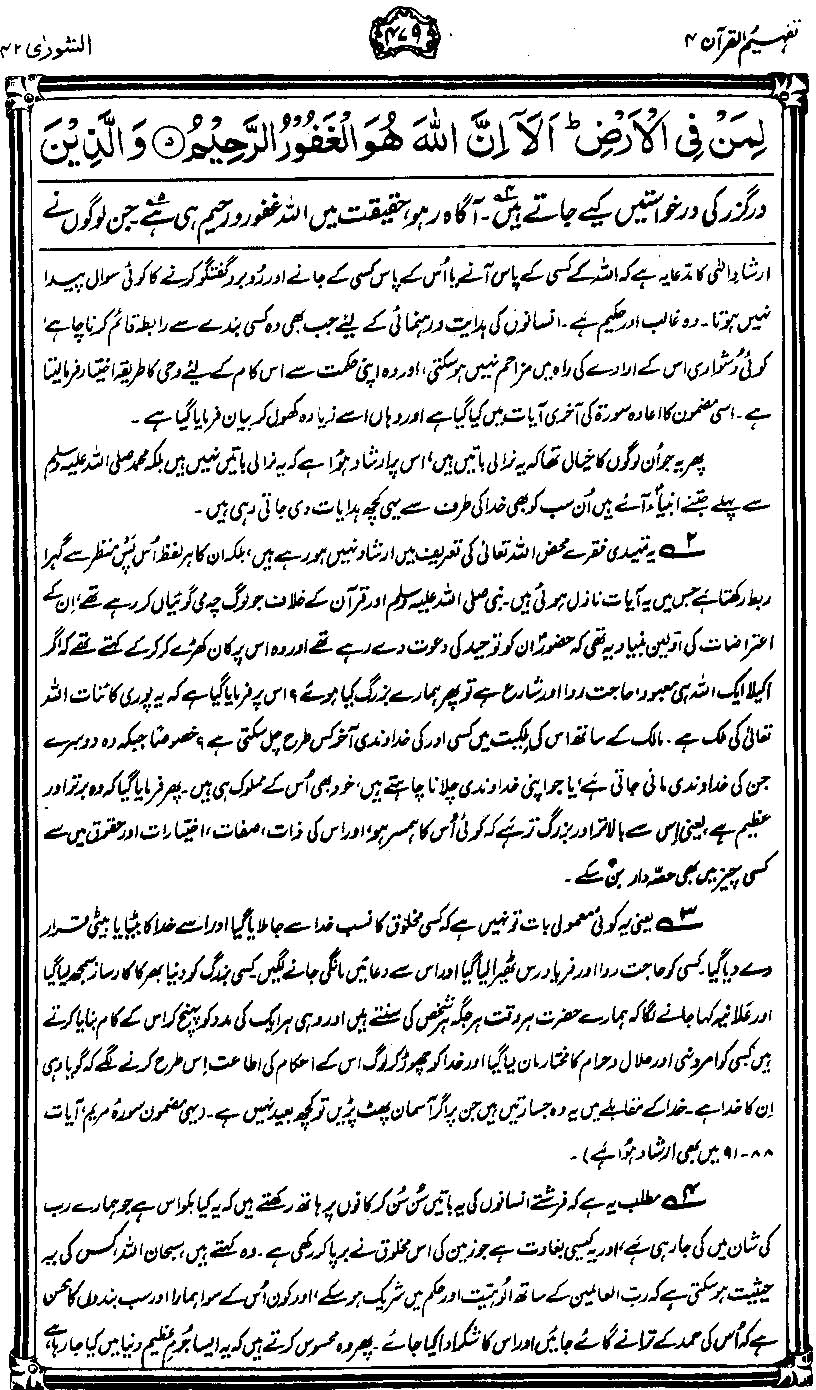 تفہیم القرآن ۴
۴۷۹
الشوریٰ ۴۲
لِمَنْ فِی الْاَرْضِ ؕ اَلَاۤ اِنَّ اللّٰهَ هُوَ الْغَفُوْرُ الرَّحِیْمُ ۝۵ وَالَّذِیْنَ
درگزر کی درخواستیں کیے جاتے ہیں۴۔ آگاہ رہو، حقیقت میں اللہ غفور و رحیم ہی ہے۵۔ جن لوگوں نے
ارشادِ الٰہی کا مدعا یہ ہے کہ اللہ کے کسی کے پاس آنے یا اُس کے پاس کسی کے جانے اور رُو برو گفتگو کرنے کا کوئی سوال پیدا
نہیں ہوتا۔ وہ غالب اور حکیم ہے۔ انسانوں کی ہدایت و رہنمائی کے لیے جب بھی وہ کسی بندے سے رابطہ قائم کرنا چاہے،
کوئی دُشواری اس کے ارادے کی راہ میں مزاحم نہیں ہوسکتی، اور وہ اپنی حکمت سے اس کام کے لیے وحی کا طریقہ اختیار فرمالیتا
ہے۔ اسی مضمون کا اعادہ سورۃ کی آخری آیات میں کیا گیا ہے اور وہاں اسے زیادہ کھول کر بیان فرمایا گیا ہے۔
پھر یہ جو اُن لوگوں کا خیال تھا کہ یہ نرالی باتیں ہیں، اس پر ارشاد ہُوا ہے کہ یہ نرالی باتیں نہیں ہیں بلکہ محمد صلی اللہ علیہ وسلم
سے پہلے جتنے انبیاء آئے ہیں اُن سب کو بھی خدا کی طرف سے یہی کچھ ہدایات دی جاتی رہی ہیں۔
۲ یہ تمہیدی فقرے محض اللہ تعالیٰ کی تعریف میں ارشاد نہیں ہو رہے ہیں، بلکہ ان کا ہر لفظ اُس پس منظر سے گہرا
ربط رکھتا ہے جس میں یہ آیات نازل ہوئی ہیں۔ نبی صلی اللہ علیہ وسلم اور قرآن کے خلاف جو لوگ چہ می گوئیاں کر رہے تھے، اِن کے
اعتراضات کی اوّلین بنیاد یہ تھی کہ حضورؐ ان کو توحید کی دعوت دے رہے تھے اور وہ اس پر کان کھڑے کر کر کے کہتے تھے کہ اگر
اکیلا ایک اللہ ہی معبود، حاجت روا اور شارع ہے تو پھر ہمارے بزرگ کیا ہوئے؟ اس پر فرمایا گیا ہے کہ یہ پوری کائنات اللہ
تعالیٰ کی ملک ہے۔ مالک کے ساتھ اس کی ملکیت میں کسی اور کی خداوندی آخر کس طرح چل سکتی ہے؟ خصوصًا جبکہ وہ دوسرے
جن کی خداوندی مانی جاتی ہے، یا جو اپنی خداوندی چلانا چاہتے ہیں، خود بھی اُس کے مملوک ہی ہیں۔ پھر فرمایا گیا کہ وہ برتر اور
عظیم ہے، یعنی اِس سے بالاتر اور بزرگ تر ہے کہ کوئی اُس کا ہمسر ہو، اور اس کی ذات، صفات، اختیارات اور حقوق میں سے
کسی چیز میں بھی حصّہ دار بن سکے۔
۳ یعنی یہ کوئی معمولی بات تو نہیں ہے کہ کسی مخلوق کا نسب خدا سے جا ملایا گیا اور اسے خدا کا بیٹا یا بیٹی قرار
دے دیا گیا۔ کسی کو حاجت روا اور فریاد رس ٹھیرا لیا گیا اور اس سے دعائیں مانگی جانے لگیں۔ کسی بزرگ کو دنیا بھر کا کارساز سمجھ لیا گیا
اور علانیہ کہا جانے لگا کہ ہمارے حضرت ہر وقت ہر جگہ ہر شخص کی سنتے ہیں اور وہی ہر ایک کی مدد کو پہنچ کر اس کے کام بنایا کرتے
ہیں۔ کسی کو امر و نہی اور حلال و حرام کا مختار مان لیا گیا اور خدا کو چھوڑ کر لوگ اس کے احکام کی اطاعت اِس طرح کرنے لگے کہ گویا وہی
اِن کا خدا ہے۔ خدا کے مقابلے میں یہ وہ جسارتیں ہیں جن پر اگر آسمان پھٹ پڑیں تو کچھ بعید نہیں ہے۔ (یہی مضمون سورۂ مریم، آیات
۸۸-۹۱ میں بھی ارشاد ہُوا ہے)۔
۴ مطلب یہ ہے کہ فرشتے انسانوں کی یہ باتیں سُن سُن کر کانوں پر ہاتھ رکھتے ہیں کہ یہ کیا بکواس ہے جو ہمارے رب
کی شان میں کی جا رہی ہے، اور یہ کیسی بغاوت ہے جو زمین کی اس مخلوق نے برپا کر رکھی ہے۔ وہ کہتے ہیں، سبحان اللہ، کس کی یہ
حیثیت ہو سکتی ہے کہ ربّ العالمین کے ساتھ اُلوہیّت اور حکم میں شریک ہو سکے، اور کون اُس کے سوا ہمارا اور سب بندوں کا محسن
ہے کہ اُس کی حمد کے ترانے گائے جائیں اور اس کا شکر ادا کیا جائے۔ پھر وہ محسوس کرتے ہیں کہ یہ ایسا جُرمِ عظیم دنیا میں کیا جا رہا ہے،